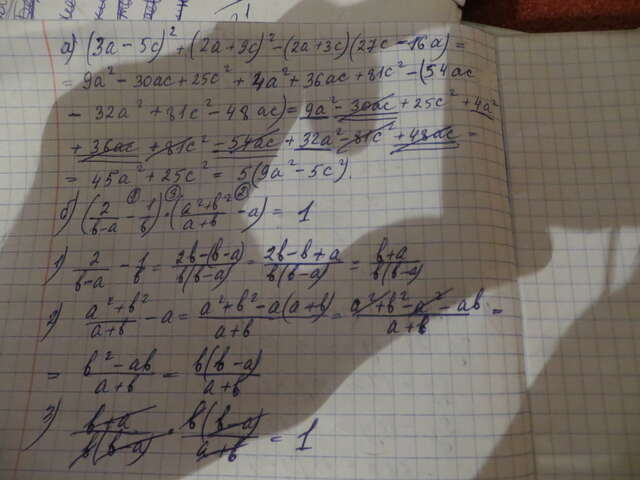 а) (3a − 5c)² + (2a + 9c)² − (2a + 3c)(27c − 16a) =
= 9a² − 30ac + 25c² + 4a² + 36ac + 81c² − (54ac
− 32a² + 81c² − 48ac) = 9a² − 30ac + 25c² + 4a²
+ 36ac + 81c² − 54ac + 32a² − 81c² + 48ac =
= 45a² + 25c² = 5(9a² − 5c²).
б) (2/(b−a) −① 1/b) ·③ ((a²+b²)/(a+b) −② a) = 1
1) 2/(b−a) − 1/b = (2b−(b−a))/(b(b−a)) = (2b−b+a)/(b(b−a)) = (b+a)/(b(b−a))
2) (a²+b²)/(a+b) − a = (a²+b²−a(a+b))/(a+b) = (a²+b²−a²−ab)/(a+b) =
= (b²−ab)/(a+b) = (b(b−a))/(a+b)
3) (b+a)/(b(b−a)) · (b(b−a))/(a+b) = 1